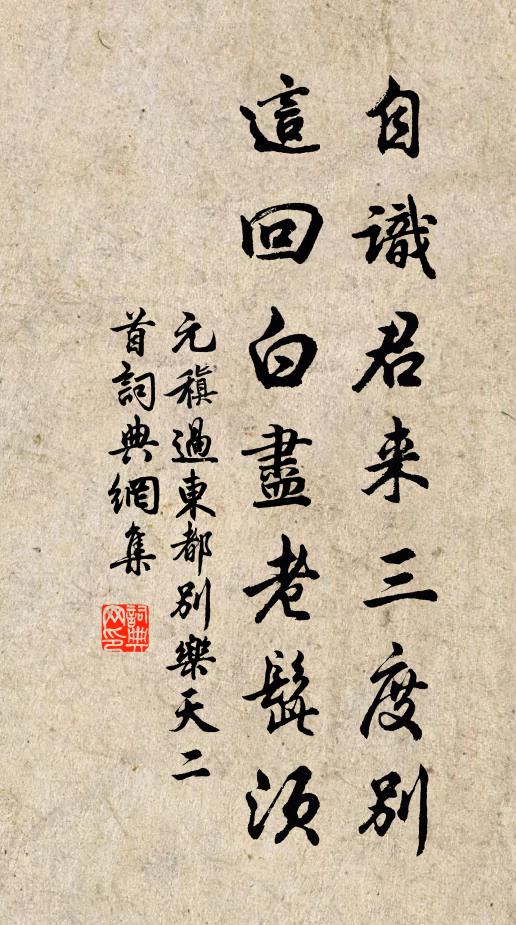 自識君来三度別
這回白盡老髭須
元稹過東都別樂天二
首詞典網集
詞典网印